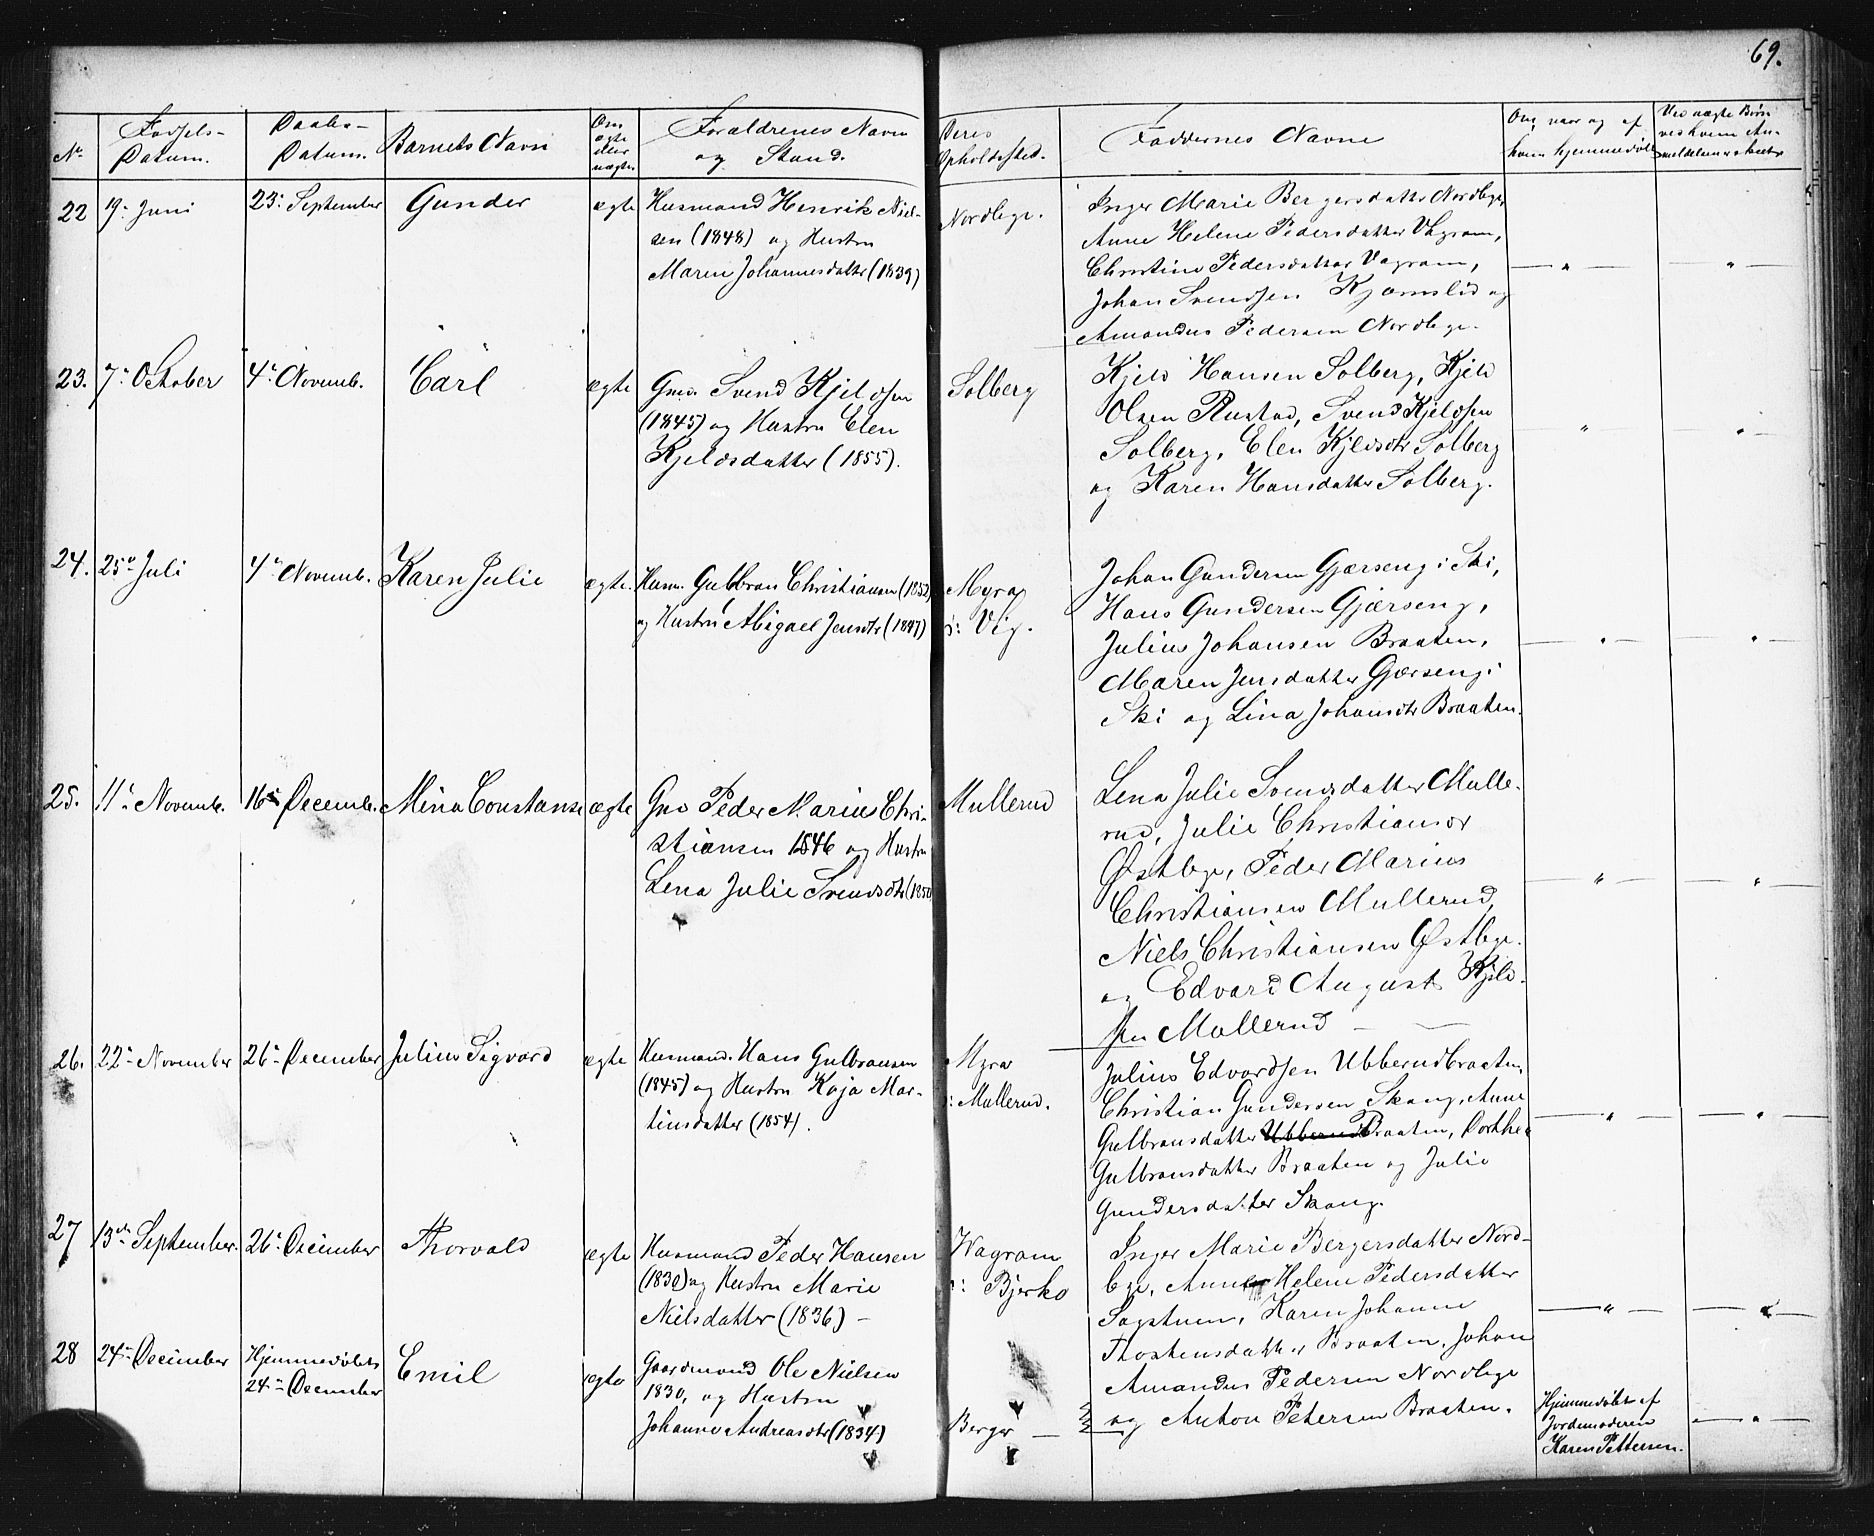 69.
No. Fødsels-Datum. Daabs-Datum. Barnets Navn Om ægte eller uægte Forældrenes Navn og Stand. Deres Opholdsted. Faddernes Navne Om, naar og af hvem hjemmedøbt Ved uægte Børn
22 19: Juni 23: September Gunder ægte Husmand Henrik Niel-
sen (1848) og Hustru
Maren Johannesdatter (1839)
Nordbye.
Inger Marie Bergersdatter Nordbye,
Anne Helene Pedersdatter Vagram,
Christine Pedersdatter Vagram,
Johan Svendsen Kjærnslid og
Amandus Pedersen Nordbye.
— " — — " —
23. 7: October 4: Novemb. Carl ægte Grd. Svend Kjeldsen
(1845) og Hustru Elen
Kjeldsdatter (1855).
Solberg
Kjeld Hansen Solberg, Kjeld
Olsen Rustad, Svend Kjeldsen
Solberg, Elen Kjeldsdtr Solberg
og Karen Hansdatter Solberg.
" "
24. 25: Juli 4: Novemb. Karen Julie ægte. Husm. Gulbran Christiansen (1852)
og Hustru Abigael Jensdtr (1847)
Myra
i: Vig.
Johan Gundersen Gjærseng i Ski,
Hans Gundersen Gjærseng,
Julius Johansen Braaten,
Maren Jensdatter Gjærseng i
Ski og Lina Johansdtr Braaten.
— " — — " —
25. 11: Novemb. 16: Decemb. Mina Constanse ægte Grd Peder Marius Chri-
stiansen 1846 og Hustru
Lena Julie Svendsdtr (1850
Mullerud
Lena Julie Svendsdatter Mulle-
rud, Julie Christiansdr
Østbye, Peder Marius
Christiansen Mullerud,
Niels Christiansen Østbye.
og Edvard August Kjeld-
sen Mullerud —
— " — — " —
26. 22: November 26: December Julius Sigvard ægte Husmand. Hans Gulbransen
(1845) og Hustru Kaja Mar-
tinsdatter (1854).
Myra
i: Mullerud.
Julius Edvardsen Ubberudbraaten,
Christian Gundersen Skaug, Anne
Gulbransdatter Ubberud Braaten, Dorthea
Gulbransdatter Braaten og Julie
Gundersdatter Skaug.
— " — — " —
27 13de September. 26: December Thorvald ægte Husmand Peder Hansen
(1830) og Hustru Marie
Nielsdatter (1836) —
Wagram
i: Bjerke
Inger Marie Bergersdatter Nord-
bye, Anne Helene Pedersdatter
Sagstuen, Karen Johanne
Thostensdatter Braaten, Johan
Amandus Pedersen Nordbye
og Anton Petersen Braaten.
— " — — " —
28 24: December Hjemmedøbt
24: December
Emil ægte Gaardmand Ole Nielsen
1830, og Hustru
Johanne Andreasdtr (1834)
Berger —
Hjemmedøbt af
Jordemoderen
Karen Pettersen.
— " —